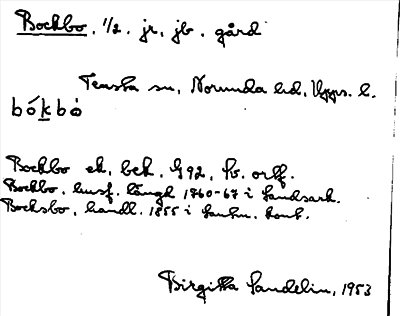 Bockbo, 1/2. jr, jb. gård
Tensta sn, Norunda hd, Upps. l.
bókbò
Bockbo ek. bek. G92, fb. orff.
Bockbo, husf. längd 1760-67 i Landsark.
Bocksbo, handl. 1855 i Lantm. kont.
Birgitta Sandelin, 1953